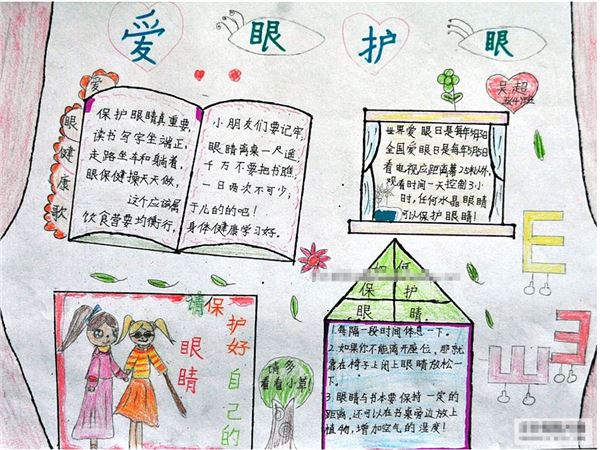 爱 眼 护 眼
吴超
爱眼健康歌
保护眼睛真重要,
读书写字坐端正,
走路坐车和躺着,
眼保健操天天做,
这个应该属
饮食营要均衡行,
小朋友们要记牢,
眼睛离桌一尺遥,
千万不要把书瞧,
一日两次不可少;
于儿的的吧!
身体健康学习好。
世界爱眼日是每年
全国爱眼日是每年
看电视应距离幕2.5米以外,
观看时间一天控制3小
时,任何水晶眼睛
可以保护眼睛!
E
E
E
保护好自己的
眼睛
请多
看看小草!
保 护
眼 睛
1.每隔一段时间休息一下。
2.如果你不能离开座位,那就
靠在椅子上闭上眼睛放松一
下。
3.眼睛与书本要保持一定的
距离,还可以在书桌旁边放上
植物,增加空气的湿度!